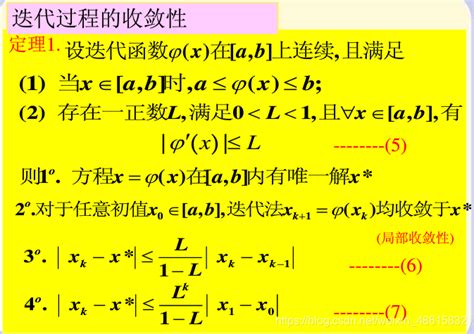 迭代过程的收敛性
定理1. 设迭代函数φ(x)在[a,b]上连续,且满足
(1) 当x∈[a,b]时,a≤φ(x)≤b;
(2) 存在一正数L,满足0<L<1,且∀x∈[a,b],有
|φ′(x)|≤L --------(5)
则1º. 方程x=φ(x)在[a,b]内有唯一解x*
2º.对于任意初值x₀∈[a,b],迭代法xₖ₊₁=φ(xₖ)均收敛于x*
(局部收敛性)
3º. |xₖ-x*|≤L/(1-L)|xₖ-xₖ₋₁| --------(6)
4º. |xₖ-x*|≤Lᵏ/(1-L)|x₁-x₀| --------(7)